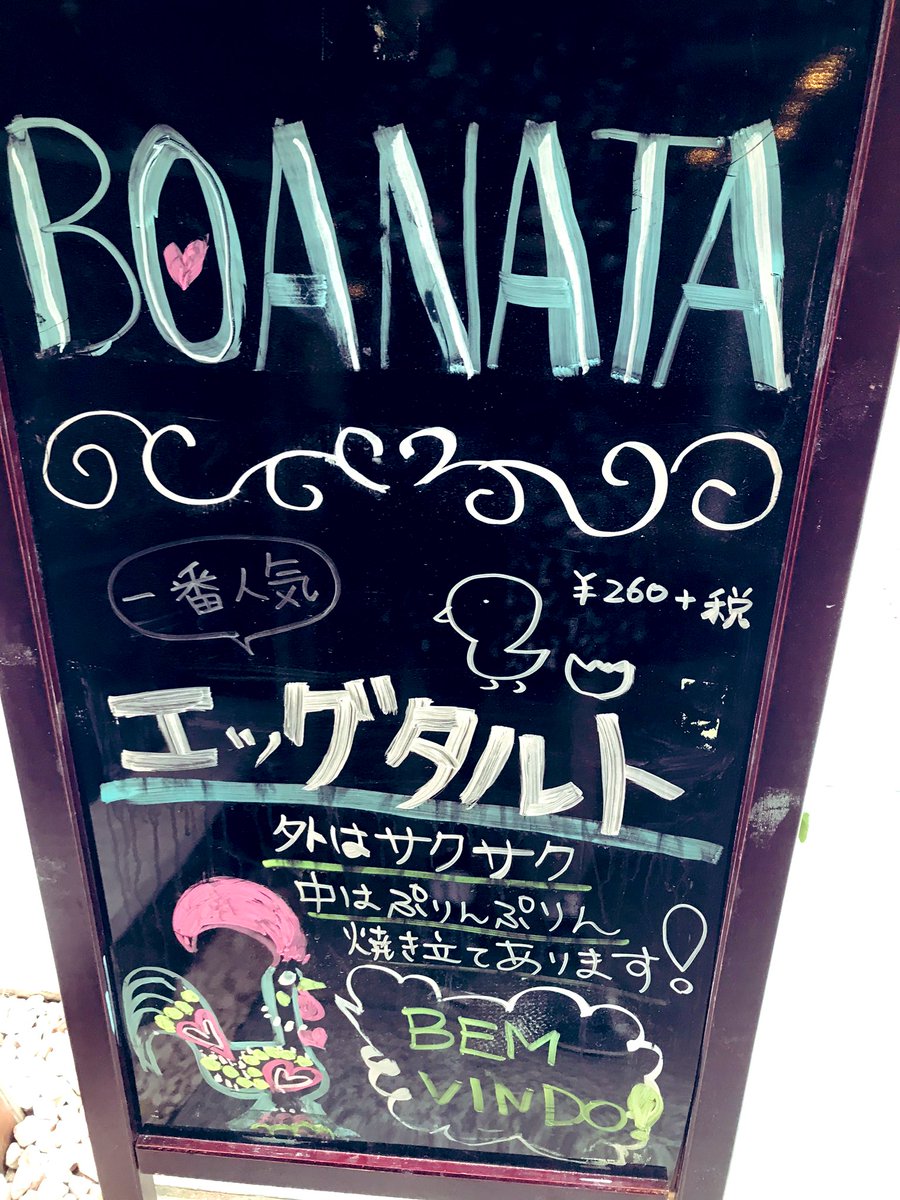 BOANATA
一番人気
¥260+税
エッグタルト
外はサクサク
中はぷりんぷりん
焼き立てあります!
BEM
VINDO!